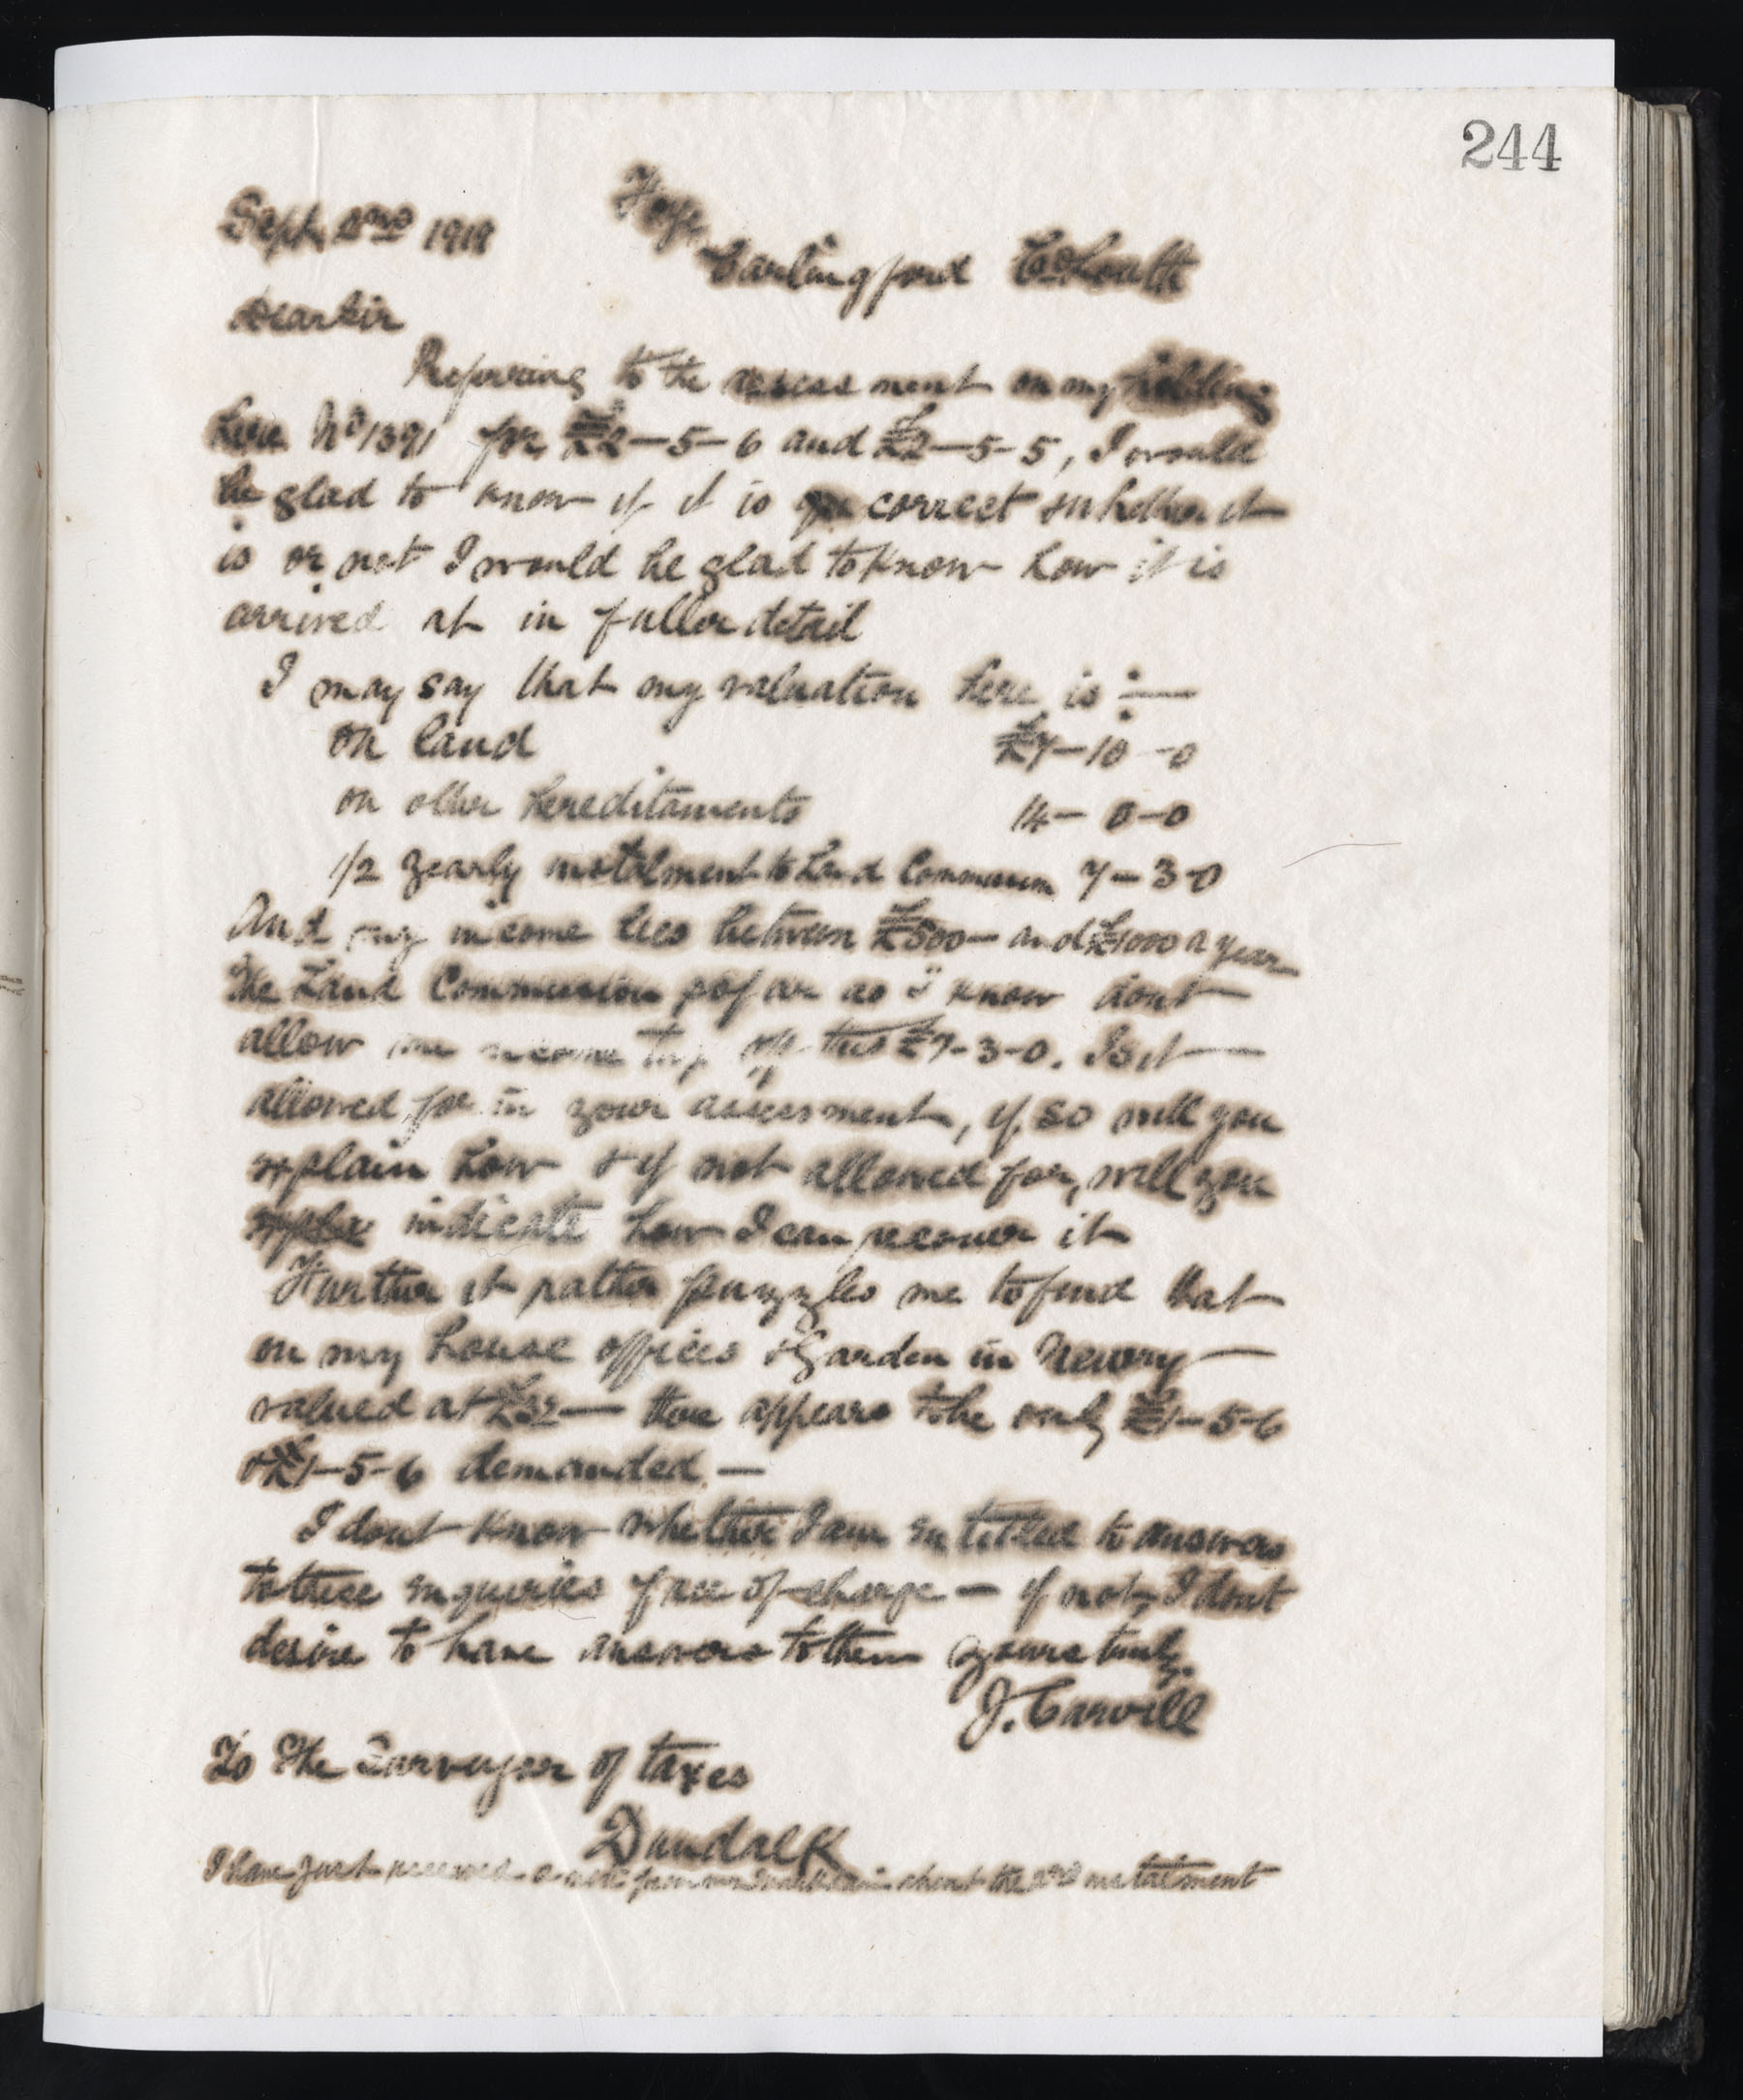 244
Sept 2nd 1918
Carlingford Co Louth
Dear Sir
Referring to the assessment on my holding
here No 1391 for £2-5-6 and £2-5-5, I would
be glad to know if it is correct whether it
is or not I would be glad to know how it is
arrived at in fuller detail
I may say that my valuation here is :—
on land £7-10-0
on other hereditaments 14-0-0
1/2 yearly instalment to Land Commission 7-3-0
And my income lies between £500— and £1000 a year
The Land Commission so far as I know dont
allow me income tax off this £7-3-0. Is it
allowed for in your assessment, if so will you
explain how & if not allowed for, will you
indicate how I can recover it
Further it rather puzzles me to find that
on my house offices & Garden in Newry
valued at £32— there appears to be only £1-5-6
& £1-5-6 demanded —
I dont know whether I am entitled to answers
to these inquiries free of charge — if not, I dont
desire to have answers to them yours truly
J. Carvill
To The Surveyor of taxes
Dundalk
I have just received a note from about the 2nd instalment